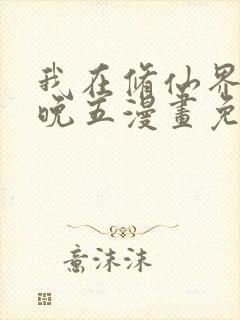 我在修仙界
晚五漫畫免
意沫沫